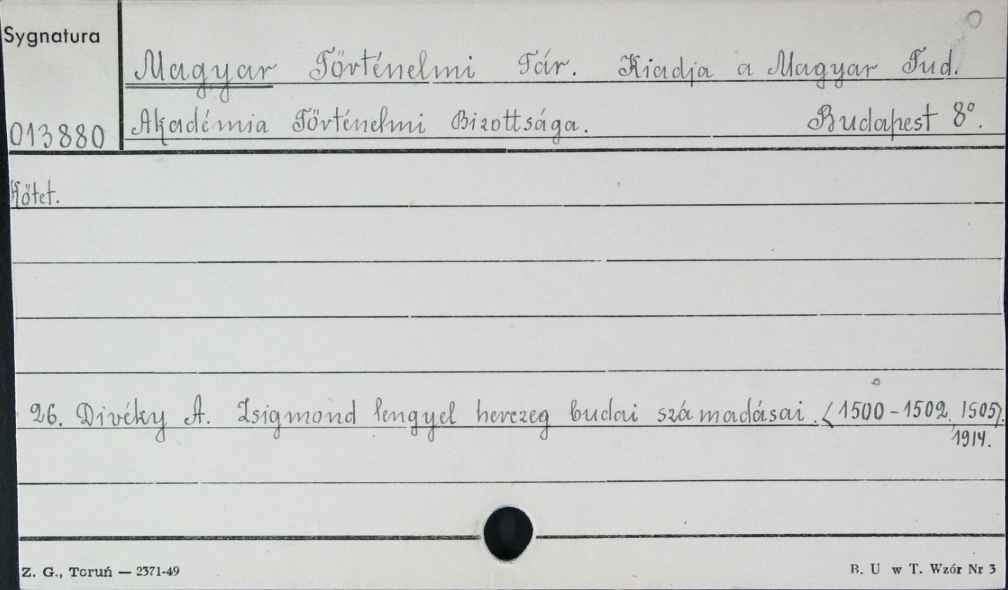 Sygnatura
Magyar Történelmi Tár. Kiadja a Magyar Tud.
013880 Akadémia Történelmi Bizottsága. Budapest 8°.
Kötet.
26. Divéky A. Zsigmond lengyel herczeg budai számadásai. (1500-1502, 1505).
1914.
Z. G., Toruń — 2371-49 B. U w T. Wzór Nr 3